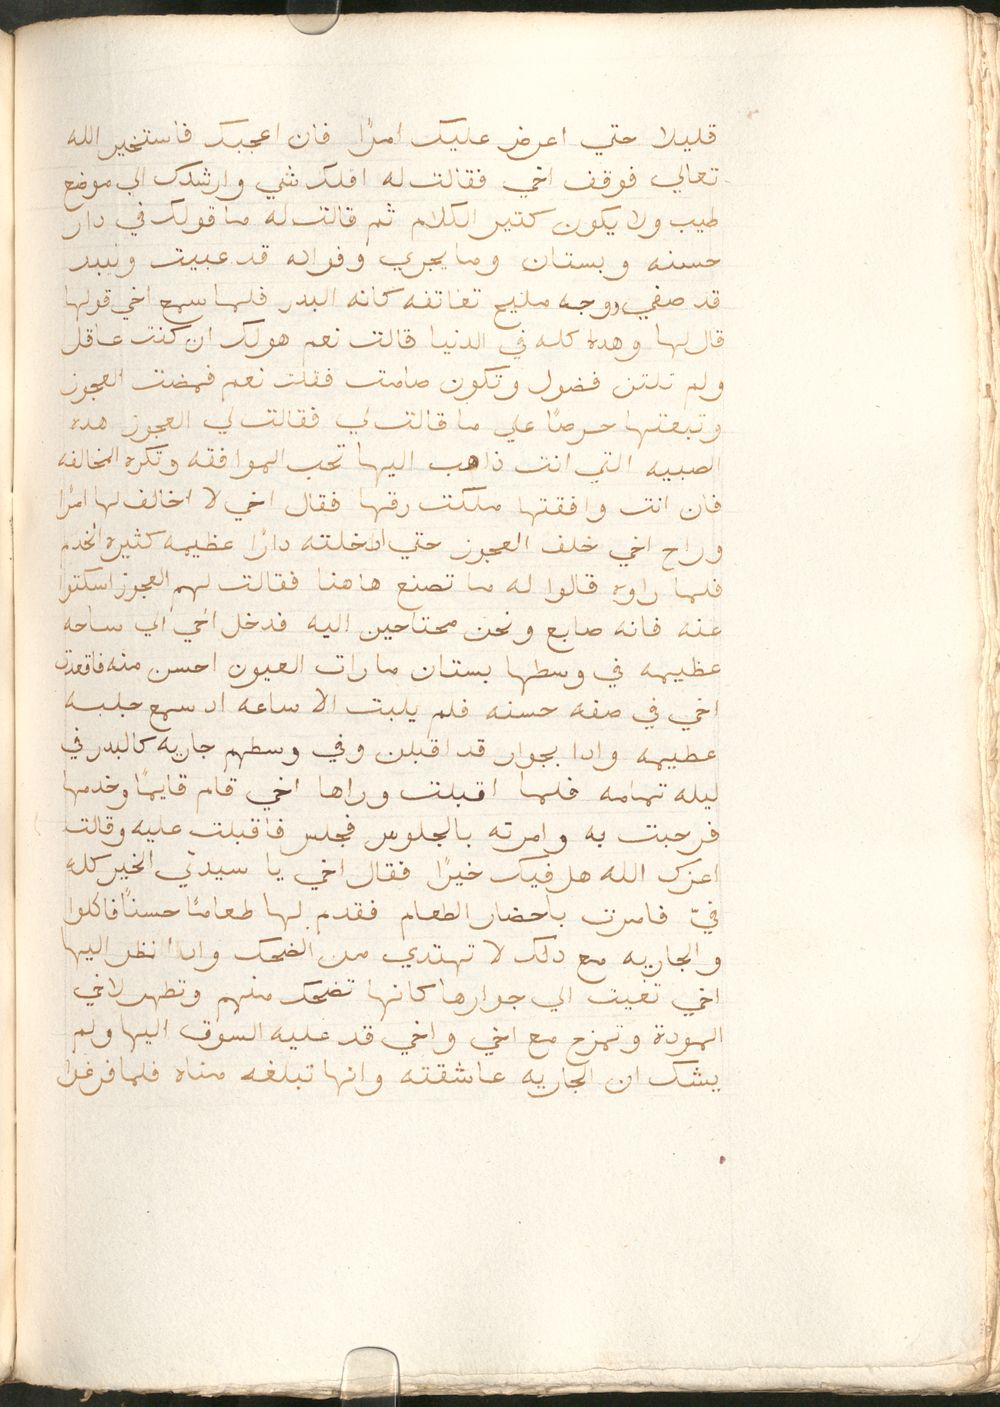 قليلا حتي اعرض عليك امرًا فان اعجبك فاستخير الله
تعالي فوقف اخي فقالت له اقلك شي وارشدك الي موضع
طيب ولا يكون كتير الكلام ثم قالت له ما قولك في دار
حسنه وبستان وما يجري وفواكه قد عبيت ونبيد
قد صفي ووجه مليح تعانقه كانه البدر فلما سمع اخي قولها
قال لها وهده كله في الدنيا قالت نعم هو لك ان كنت عاقل
ولم تلتن فضول وتكون صامت فقلت نعم فمضت العجوز
وتبعتها حرصًا علي ما قالت لي فقالت لي العجوز هده
الصبيه التي انت ذاهب اليها تحب الموافقه وتكره المخالفه
فان انت وافقتها ملكت رقها فقال اخي لا اخالف لها امرًا
وراح اخي خلف العجوز حتي ادخلته دارًا عظيمه كثيرة الخدم
فلما راوه قالوا له ما تصنع هاهنا فقالت لهم العجوز اسكتوا
عنه فانه صايع ونحن محتاجين اليه فدخل اخي الي ساحه
عظيمه في وسطها بستان ما رات العيون احسن منه فاقعدت
اخي في صفه حسنه فلم يلبت الا ساعه اد سمع جلبه
عظيمه وادا بجوار قد اقبلن وفي وسطهم جاريه كالبدر في
ليله تمامه فلما اقبلت وراها اخي قام قايمًا وخدمها
فرحبت به وامرته بالجلوس فجلس فاقبلت عليه وقالت
اعزك الله هل فيك خيرًا فقال اخي يا سيدتي الخير كله
فيّ فامرت باحضار الطعام فقدم لها طعامًا حسنًا فاكلوا
والجاريه مع دلك لا تهتدي من الضحك وادا انظر اليها
اخي تغيت الي جوارها كانها تضحك منهم وتطهر لاخي
المودة وتمزح مع اخي واخي قد عليه السوق اليها ولم
يشك ان الجاريه عاشقته وانها تبلغه مناه فلما فرغوا